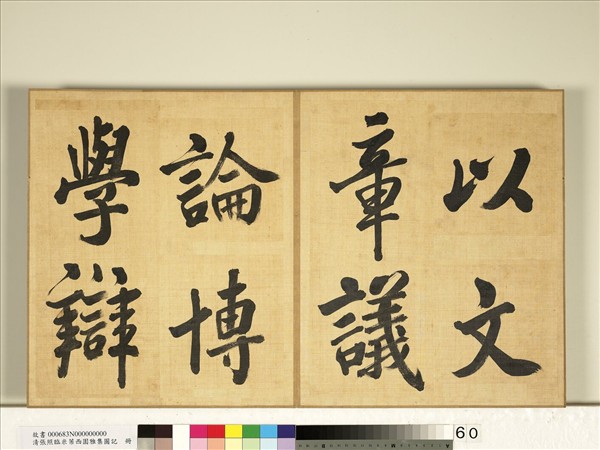 以文
章議
論博
學辯
60
故書 000683N000000000
清張照臨米芾西園雅集圖記 冊